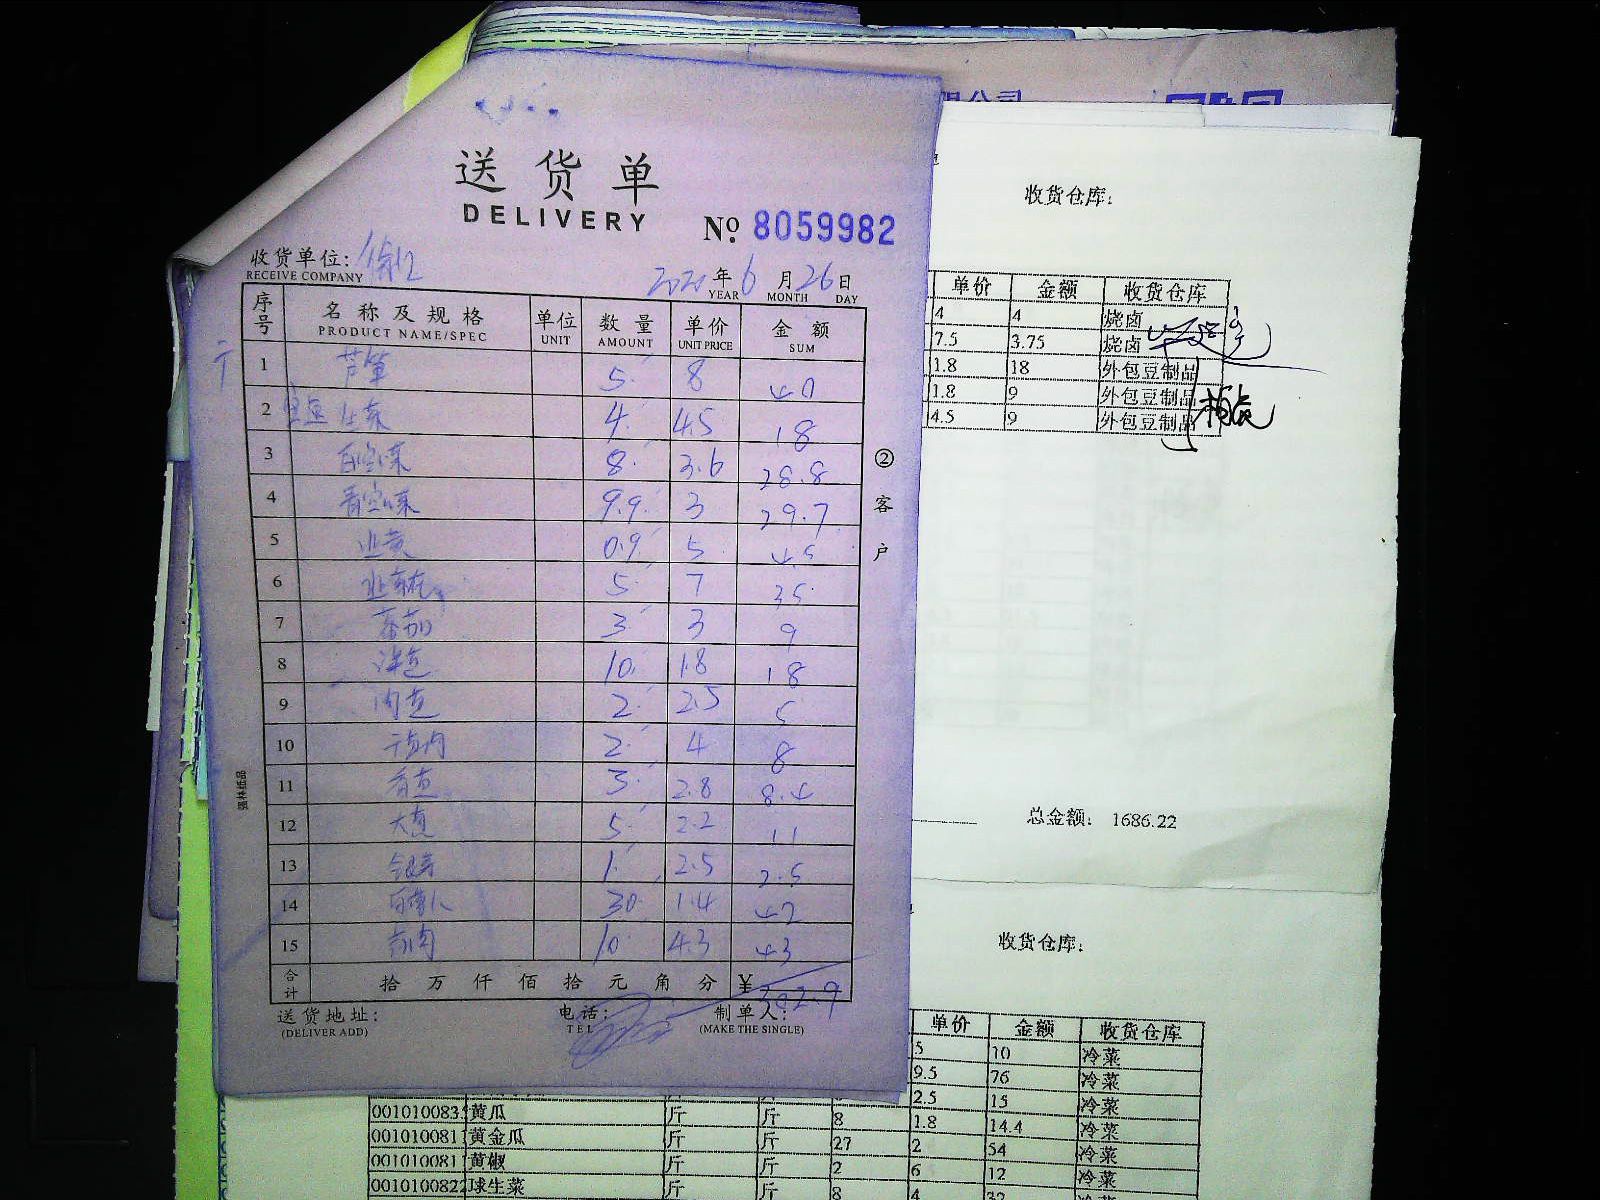 送货单
DELIVERY
№ 8059982
收货单位:
RECEIVE COMPANY
2020 年 6 月 26 日
YEAR MONTH DAY
序号 名称及规格 单位 数量 单价 金额
PRODUCT NAME/SPEC UNIT AMOUNT UNIT PRICE SUM
1 芦笋 5 8 40
2 生菜 4 4.5 18
3 白空心菜 8 3.6 28.8
4 青空心菜 9.9 3 29.7
5 韭黄 0.9 5 4.5
6 韭菜花 5 7 35
7 番茄 3 3 9
8 10 1.8 18
9 2 2.5 5
10 2 4 8
11 3 2.8 8.4
12 5 2.2 11
13 1 2.5 2.5
14 30 1.4 42
15 10 4.3 43
合计 拾 万 仟 佰 拾 元 角 分 ¥ 302.9
送货地址: 电话: 制单人:
(DELIVER ADD) TEL (MAKE THE SINGLE)
②客户
限公司
收货仓库:
单价 金额 收货仓库
4 4 烧卤
7.5 3.75 烧卤
1.8 18 外包豆制品
1.8 9 外包豆制品
4.5 9 外包豆制品
总金额: 1686.22
收货仓库:
单价 金额 收货仓库
5 10 冷菜
9.5 76 冷菜
2.5 15 冷菜
001010083 黄瓜 斤 斤 8 1.8 14.4 冷菜
001010081 黄金瓜 斤 斤 27 2 54 冷菜
001010081 黄椒 斤 斤 2 6 12 冷菜
0010100822 球生菜 斤 斤 8 4 32 冷菜